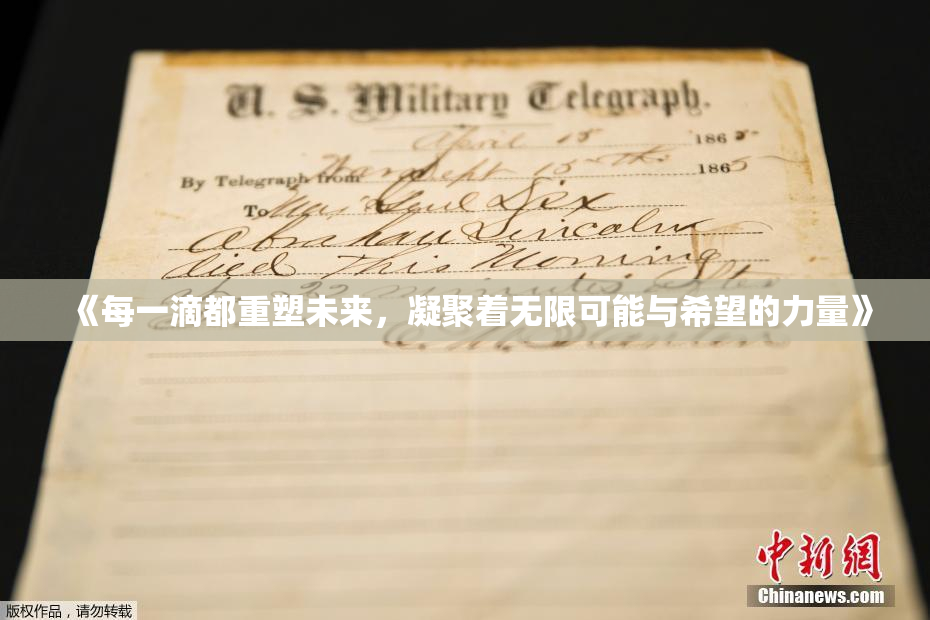 U. S. Military Telegraph.
April 15 1865
By Telegraph from War Dept 15th 1865
To Maj Genl Dix
Abraham Lincoln
died This Morning
at 22 minutes after
《每一滴都重塑未来，凝聚着无限可能与希望的力量》
中新网
Chinanews.com
版权作品，请勿转载